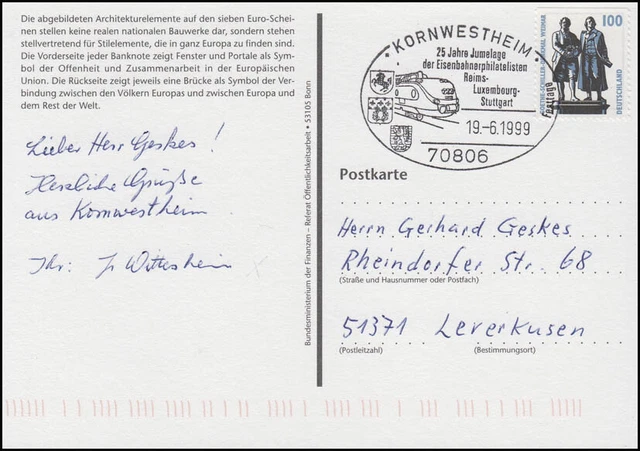 Die abgebildeten Architekturelemente auf den sieben Euro-Schei-
nen stellen keine realen nationalen Bauwerke dar, sondern stehen
stellvertretend für Stilelemente, die in ganz Europa zu finden sind.
Die Vorderseite jeder Banknote zeigt Fenster und Portale als Sym-
bol der Offenheit und Zusammenarbeit in der Europäischen
Union. Die Rückseite zeigt jeweils eine Brücke als Symbol der Ver-
bindung zwischen den Völkern Europas und zwischen Europa und
dem Rest der Welt.
Lieber Herr Geskes!
Herzliche Grüße
aus Kornwestheim
Ihr: Wittesheim
Bundesministerium der Finanzen – Referat Öffentlichkeitsarbeit • 53105 Bonn
KORNWESTHEIM
25 Jahre Jumelage
der Eisenbahnerphilatelisten
Reims-
Luxembourg-
Stuttgart
19.-6.1999
70806
Festtage
100
GOETHE-SCHILLER-DENKMAL WEIMAR
DEUTSCHLAND
Postkarte
Herrn Gerhard Geskes
Rheindorfer Str. 68
(Straße und Hausnummer oder Postfach)
51371 Leverkusen
(Postleitzahl) (Bestimmungsort)